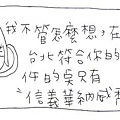 我不管怎麼想,在
台北符合你的
件的只有
信義華納威